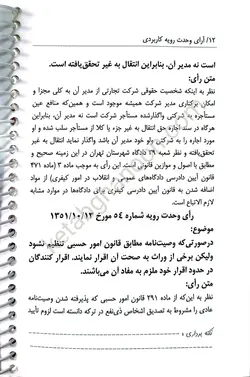 ۱۲/ آرای وحدت رویه کاربردی
است نه مدیر آن. بنابراین انتقال به غیر تحقق‌یافته است.
متن رأی:
نظر به اینکه شخصیت حقوقی شرکت تجارتی از مدیر آن به کلی مجزا و
امکان برکناری مدیر شرکت همیشه موجود است و همین‌که منافع عین
مستأجره به شرکتی واگذارشده مستأجر آن شرکت است نه مدیر آن. بنابراین
هرگاه در سند اجاره حق انتقال به غیر جزء یا کلاً از مستأجر سلب شده و
مورد اجاره را به شرکتی ولو خود مدیر آن باشد واگذار نماید انتقال به غیر
تحقق‌یافته و نظر شعبه ۲۹ دادگاه شهرستان تهران در این زمینه صحیح و
مطابق با اصول و موازین قانونی است. این رأی به موجب ماده ۳ (ماده ۴۷۱
قانون آیین دادرسی دادگاه‌های عمومی و انقلاب در امور کیفری) از مواد
اضافه شده به قانون آیین دادرسی کیفری برای دادگاه‌ها در موارد مشابه
لازم الاتباع است.
رأی وحدت رویه شماره ۵۴ مورخ ۱۳۵۱/۱۰/۱۳
موضوع:
درصورتی‌که وصیت‌نامه مطابق قانون امور حسبی تنظیم نشود
ولیکن برخی از وراث به صحت آن اقرار نمایند. اقرار کنندگان
در حدود اقرار خود ملزم به مفاد آن می‌باشند.
متن رأی:
نظر به این‌که از ماده ۲۹۱ قانون امور حسبی که پذیرفته شدن وصیت‌نامه
عادی را مشروط به تصدیق اشخاص ذی‌نفع در ترکه دانسته است لزوم تأیید
نکته پردازی